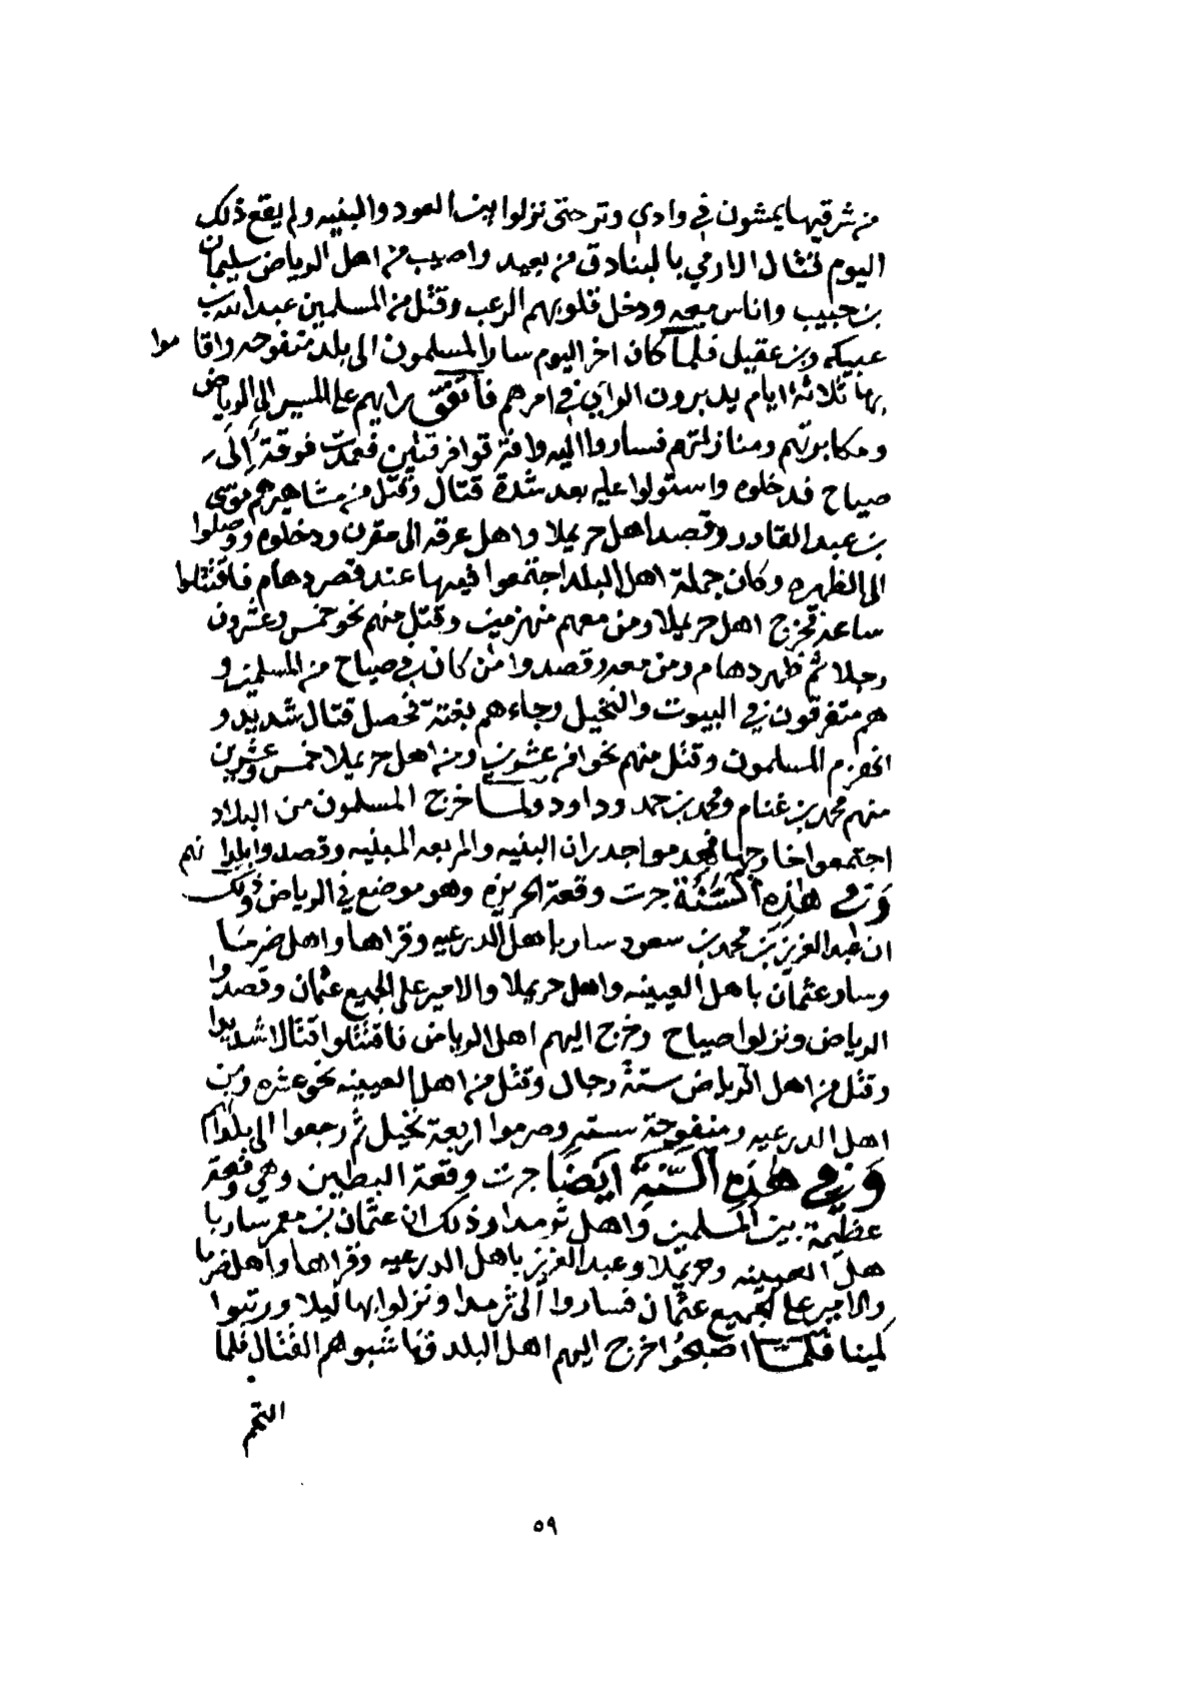 من شرقيها يمشون في وادي وتر حتى نزلوا بين العود والبنيه ولم يقع ذلك
اليوم قتال الا رمي بالبنادق من بعيد واصيب من اهل الرياض سليمان
بن حبيب واناس معه ودخل قلوبهم الرعب وقتل من المسلمين عبد الله بن
عبيكه وبن عقيل فلما كان اخر اليوم سار المسلمون الى بلد منفوحه واقاموا
بها ثلاثة ايام يدبرون الراي في امرهم فاتفق رايهم على المسير الى الرياض
ومكابرتهم ومنازلتهم فساروا اليه وافترقوا فرقتين فعمدت فرقة الى
صياح فدخلوه واستولوا عليه بعد شدة قتال وقتل من مشاهيرهم موسى
بن عبد القادر وقصد اهل حريملا واهل عرقه الى مقرن ودخلوه ووصلوا
الى الظهره وكان جملة اهل البلد اجتمعوا فيها عند قصر دهام فاقتتلوا
ساعة فخرج اهل حريملا ومن معهم منهزمين وقتل منهم نحو خمس وعشرون
رجلا ثم ظهر دهام ومن معه وقصدوا من كان في صياح من المسلمين و
هم متفرقون في البيوت والنخيل وجاءهم بغتة فحصل قتال شديد و
انهزم المسلمون وقتل منهم نحوا من عشرين ومن اهل حريملا خمس وعشرين
منهم محمد بن غنام ومحمد بن حمد وداود ولما خرج المسلمون من البلاد
اجتمعوا خارجها فهدموا جدران البنيه والمربعه المبنيه وقصدوا بلدانهم
وفي هذه السنة جرت وقعة الحريزه وهو موضع في الرياض وذلك
ان عبد العزيز بن محمد بن سعود سار باهل الدرعيه وقراها واهل ضرما
وسار عثمان باهل العيينه واهل حريملا والامير على الجميع عثمان وقصدوا
الرياض ونزلوا صياح وخرج اليهم اهل الرياض فاقتتلوا قتالا شديدا
وقتل من اهل الرياض ستة رجال وقتل من اهل العيينه نحو عشره ومن
اهل الدرعيه ومنفوحة سته وصرموا اربعة نخيل ثم رجعوا الى بلدانهم
وفي هذه السنة ايضا جرت وقعة البطين وهي وقعة
عظيمة بين المسلمين واهل ثرمدا وذلك ان عثمان بن معمر سار با
هل العيينه وحريملا وعبد العزيز باهل الدرعيه وقراها واهل ضرما
والامير على الجميع عثمان فساروا الى ثرمدا ونزلوا بها ليلا ورتبوا
كمينا فلما اصبحوا خرج اليهم اهل البلد فناشبوهم القتال فلما
التحم
٥٩